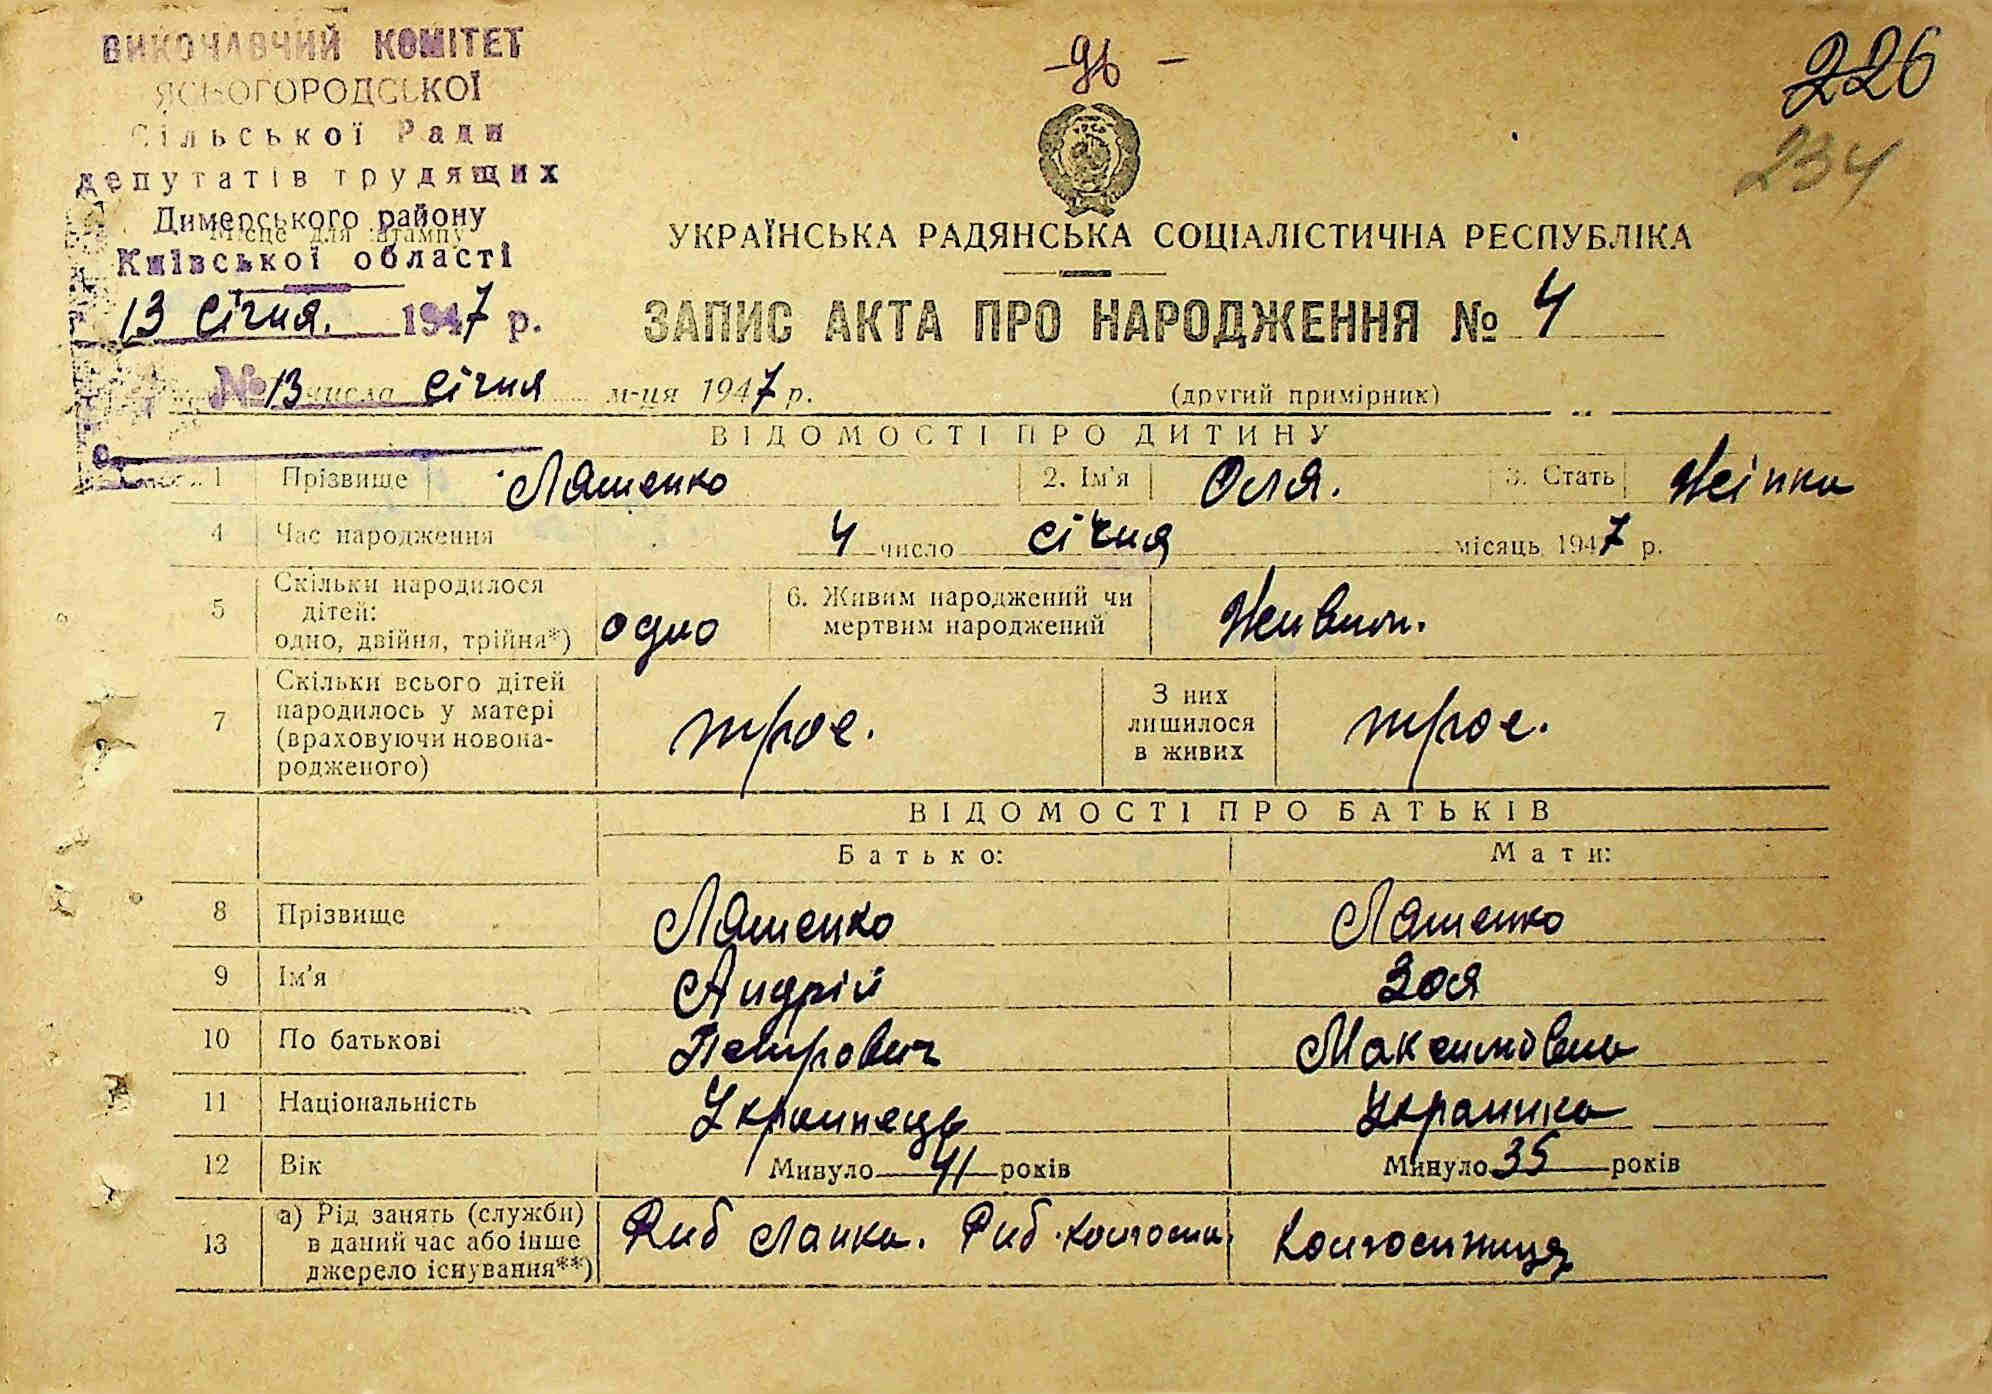 ВИКОНАВЧИЙ КОМІТЕТ
ЯСНОГОРОДСЬКОЇ
Сільської Ради
депутатів трудящих
Димерського району
Місце для штампу
Київської області
13 січня. 1947 р.
- 96 -
226
234
УКРАЇНСЬКА РАДЯНСЬКА СОЦІАЛІСТИЧНА РЕСПУБЛІКА
ЗАПИС АКТА ПРО НАРОДЖЕННЯ № 4
№ 13 числа січня м-ця 1947 р.
(другий примірник)
ВІДОМОСТІ ПРО ДИТИНУ
1 Прізвище Ляшенко 2. Ім'я Оля. 3. Стать Жінка
4 Час народження 4 число січня місяць 1947 р.
5 Скільки народилося дітей: одно, двійня, трійня*) одно 6. Живим народжений чи мертвим народжений Живим.
7 Скільки всього дітей народилось у матері (враховуючи новонародженого) трое. З них лишилося в живих трое.
ВІДОМОСТІ ПРО БАТЬКІВ
Батько: Мати:
8 Прізвище Ляшенко Ляшенко
9 Ім'я Андрій Зоя
10 По батькові Петрович Максимовна
11 Національність Украинець Украинка
12 Вік Минуло 41 років Минуло 35 років
13 а) Рід занять (служби) в даний час або інше джерело існування**) Риб ланка. Риб. колгоспа. Колгоспниця